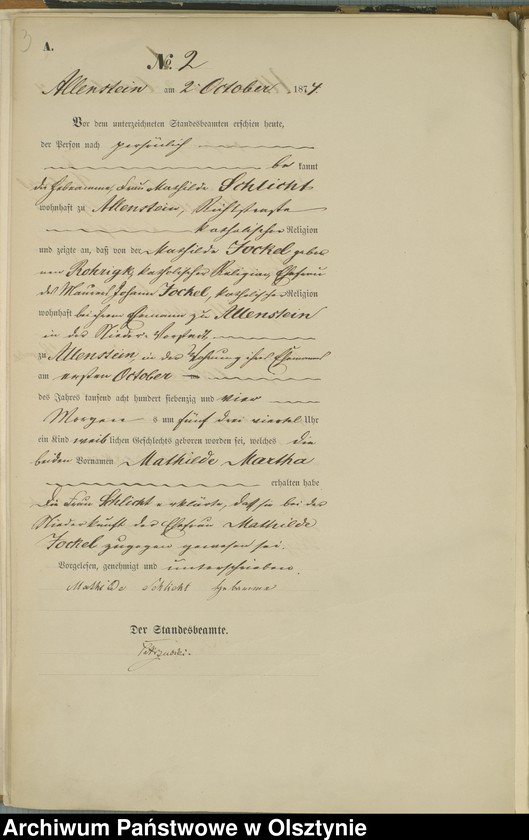 3
A.
No. 2
Allenstein am 2. October 1874
Vor dem unterzeichneten Standesbeamten erschien heute,
der Person nach persönlich
be kannt
die Hebeamme, Frau Mathilde Schlicht
wohnhaft zu Allenstein, Richtstraße
katholischer Religion
und zeigte an, daß von der Mathilde Jockel gebor
nen Rohrigk, katholischer Religion, Ehefrau
des Maurers Johann Jockel, katholischer Religion
wohnhaft bei ihrem Ehemann zu Allenstein
in der Nieder-Vorstadt,
zu Allenstein, in der Wohnung ihres Ehemanns
am ersten October
des Jahres tausend acht hundert siebenzig und vier
Morgens um fünf drei viertel Uhr
ein Kind weib lichen Geschlechts geboren worden sei, welches die
beiden Vornamen Mathilde Martha
erhalten habe
Die Frau Schlicht erklärte, daß sie bei der
Niederkunft der Ehefrau Mathilde
Jockel zugegen gewesen sei.
Vorgelesen, genehmigt und unterschrieben.
Mathilde Schlicht Hebamme
Der Standesbeamte.
Archiwum Państwowe w Olsztynie